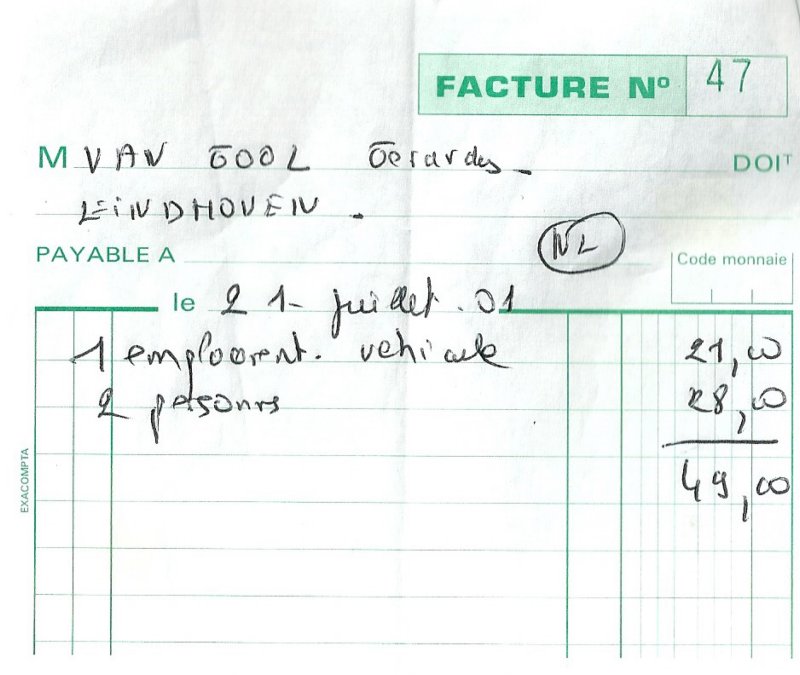 FACTURE Nº 47
M VAN GOOL Gerardus DOIT
EINDHOVEN.
PAYABLE A NL
Code monnaie
le 21 juillet.01
1 emplacement. vehicule 21,00
2 personnes 28,00
49,00
EXACOMPTA